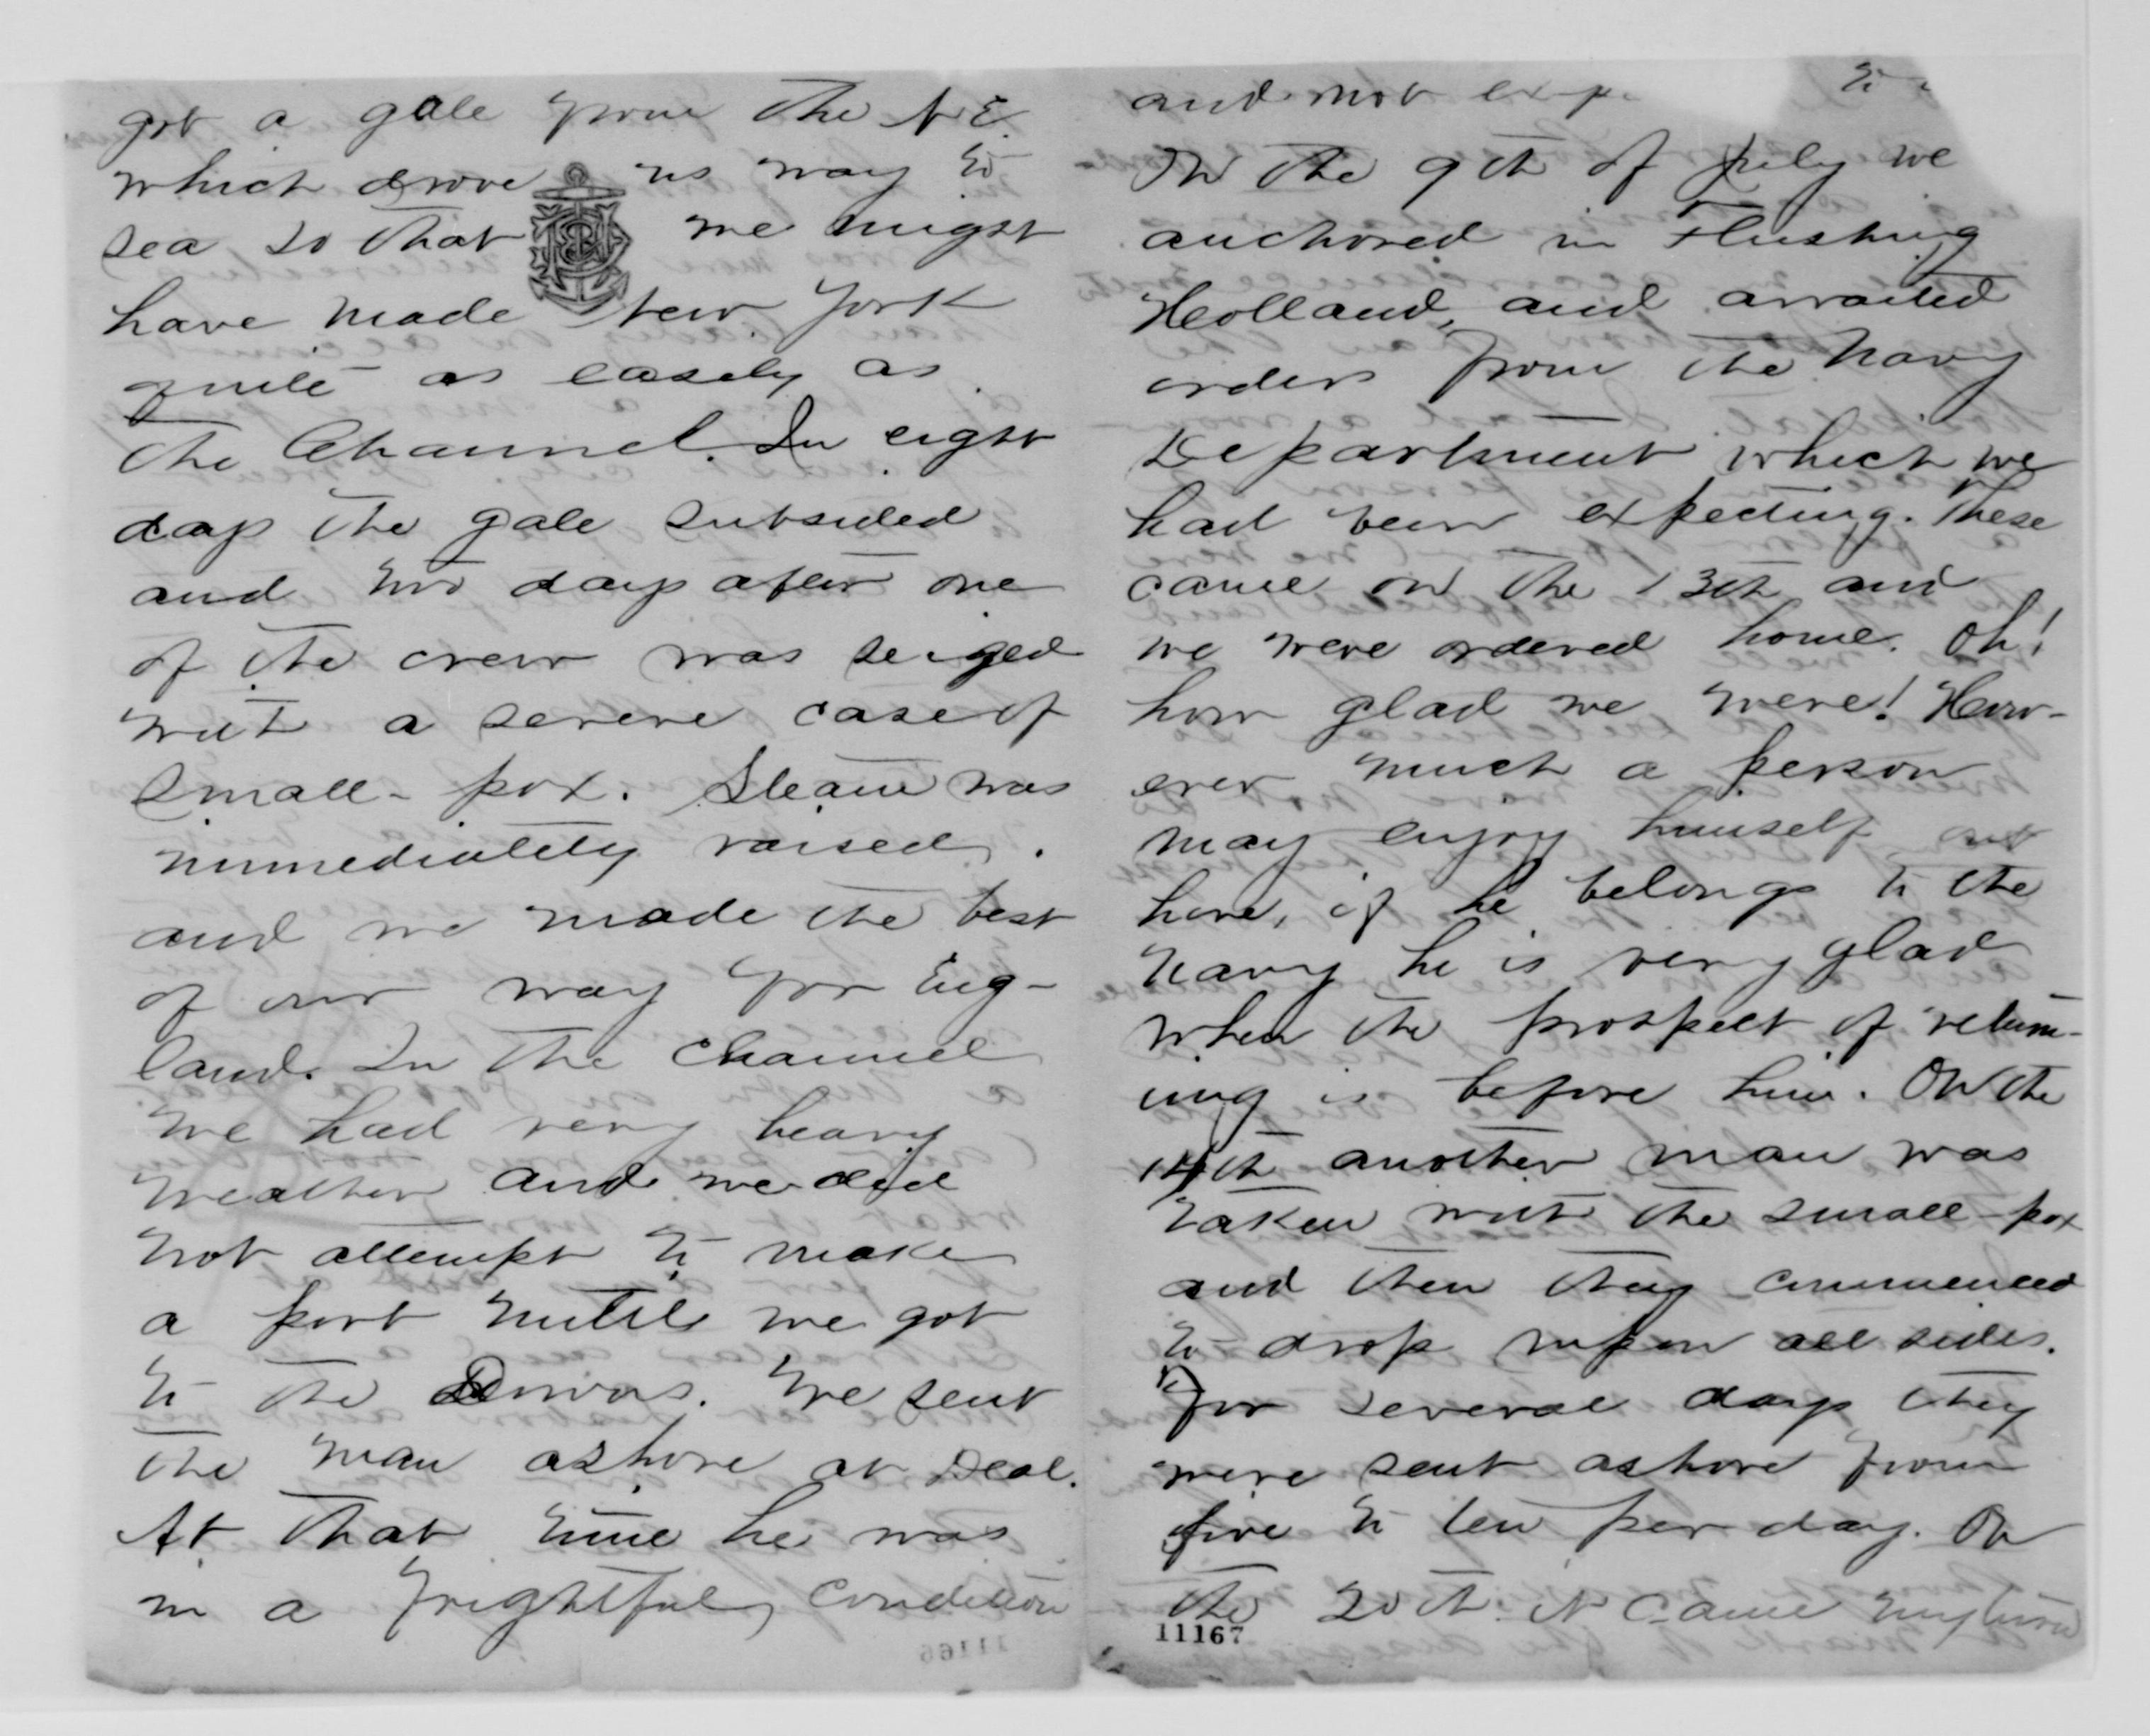 got a gale from the N.E.
which drove us way to
sea so that we might
have made New York
quite as easily as
the Channel. In eight
days the gale subsided
and two days after one
of the crew was seized
with a severe case of
small-pox. Steam was
immediately raised.
and we made the best
of our way for Eng-
land. In the channel
we had very heavy
weather and we did
not attempt to make
a port until we got
to the Downs. We sent
the man ashore at Deal.
At that time he was
in a frightful condition
11166
and not
On the 9th of July we
anchored in Flushing
Holland, and awaited
orders from the Navy
Department which we
had been expecting. These
came on the 13th and
we were ordered home. Oh!
how glad we were! How-
ever much a person
may enjoy himself out
here, if he belongs to the
Navy he is very glad
when the prospect of return-
ing is before him. On the
14th another man was
taken with the small-pox
and then they commenced
to drop upon all sides.
For several days they
were sent ashore from
five to ten per day. On
the 20th it came my turn
11167